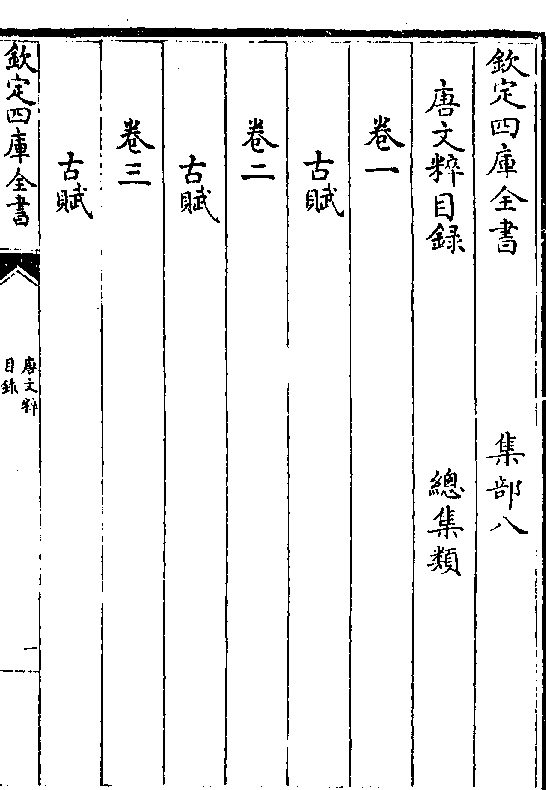 欽定四庫全書 集部八
唐文粹目録 總集類
卷一
古賦
卷二
古賦
卷三
古賦
欽定四庫全書
唐文粹
目録
一